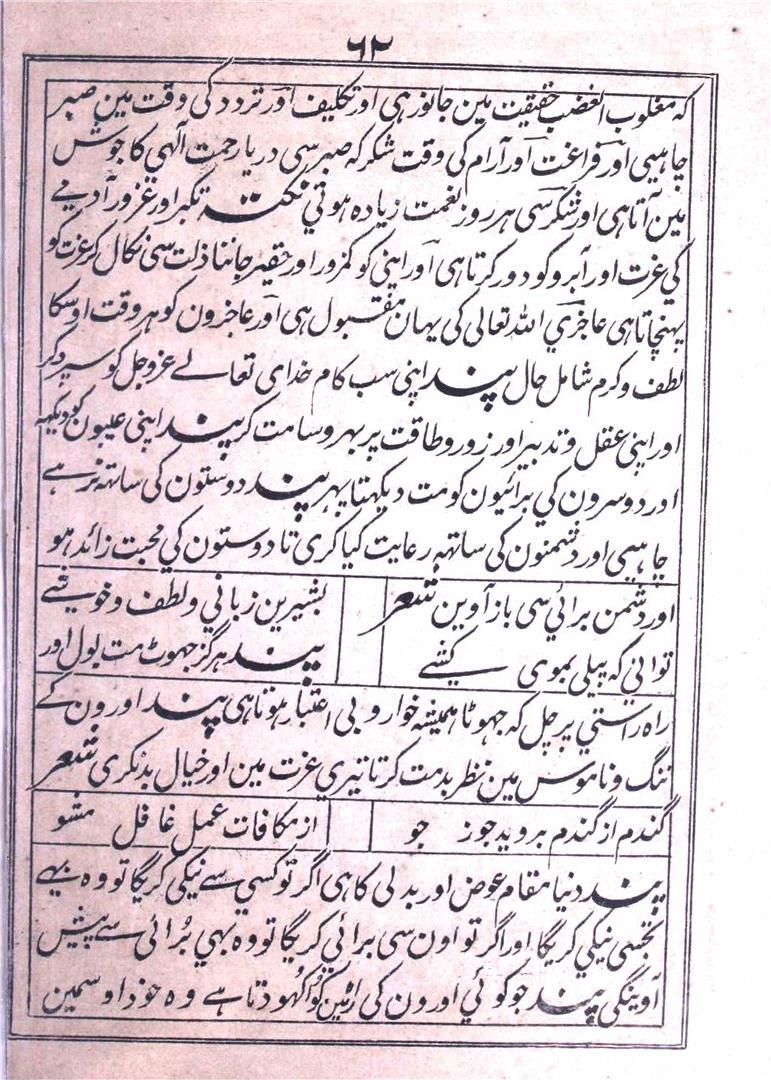 ٦٢
که مغلوب الغضب حقیقت مین جانور هی اور تکلیف اور تردد کی وقت مین صبر
چاهیی اور فراغت اور آرام کی وقت شکر که صبر سی دریا رحمت آلهی کا جوش
مین آتا هی اور شکر سی هر روز نعمت زیاده هوتي نکته تکبر اور غرور آدمے
کي عزت اور آبرو کو دور کرتا هی اور اپنی کو کمزور اور حقیر جاننا ذلت سی نکال کر عزت کو
پهنچاتا هی عاجزي الله تعالی کی یهان مقبول هی اور عاجزون کو هر وقت اوسکا
لطف و کرم شامل حال پند اپنی سب کام خدای تعالے عزوجل کو سپرد کر
اور اپنی عقل و تدبیر اور زور و طاقت پر بهروسا مت کر پند اپنی عیبون کو دیکهه
اور دوسرون کي برائیون کو مت دیکهتا پهر پند دوستون کی ساتهه نرمے
چاهیی اور دشمنون کی ساتهه رعایت کیا کری تا دوستون کي محبت زائد هو
اور دشمن برائي سی باز آوین شعر بشیرین زباني و لطف و خوشے
تواني که پیلی بموی کشے پند هرگز جهوٹ مت بول اور
راه راستي پر چل که جهوٹا همیشه خوار و بی اعتبار هوتا هی پند اورون کے
ننگ و ناموس مین نظر بد مت کر تا تیري عزت مین اور خیال بد نکری شعر
گندم از گندم بروید جو ز جو از مکافات عمل غافل مشو
پند دنیا مقام عوض اور بدلی کا هی اگر تو کسي سے نیکی کریگا تو وه بهے
تجسی نیکي کریگا اور اگر تو اون سی برائي کریگا تو وه بهي بُرائی سے پیش
آوینگی پند جو کوئي اورون کی راه مین کُوا کُهودتا هے وه خود اوسمین